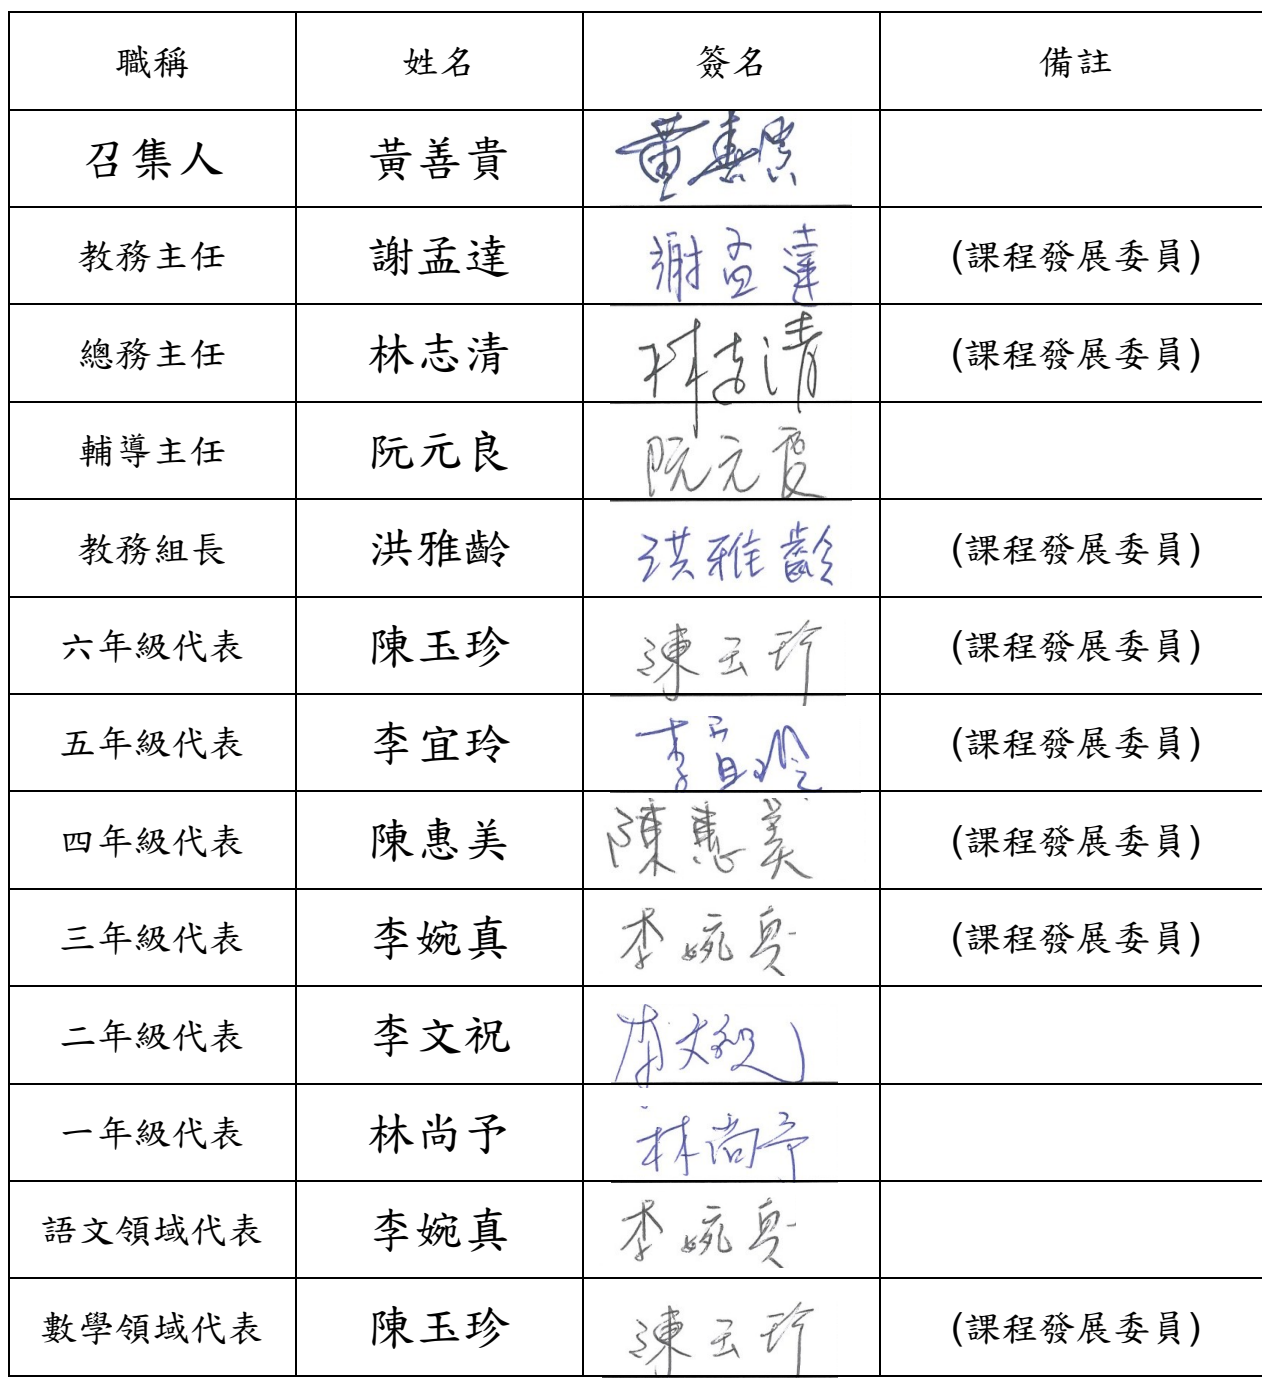 職稱 姓名 簽名 備註
召集人 黃善貴 黃善貴
教務主任 謝孟達 謝孟達 (課程發展委員)
總務主任 林志清 林志清 (課程發展委員)
輔導主任 阮元良 阮元良
教務組長 洪雅齡 洪雅齡 (課程發展委員)
六年級代表 陳玉珍 陳玉珍 (課程發展委員)
五年級代表 李宜玲 李宜玲 (課程發展委員)
四年級代表 陳惠美 陳惠美 (課程發展委員)
三年級代表 李婉真 李婉真 (課程發展委員)
二年級代表 李文祝 李文祝
一年級代表 林尚予 林尚予
語文領域代表 李婉真 李婉真
數學領域代表 陳玉珍 陳玉珍 (課程發展委員)